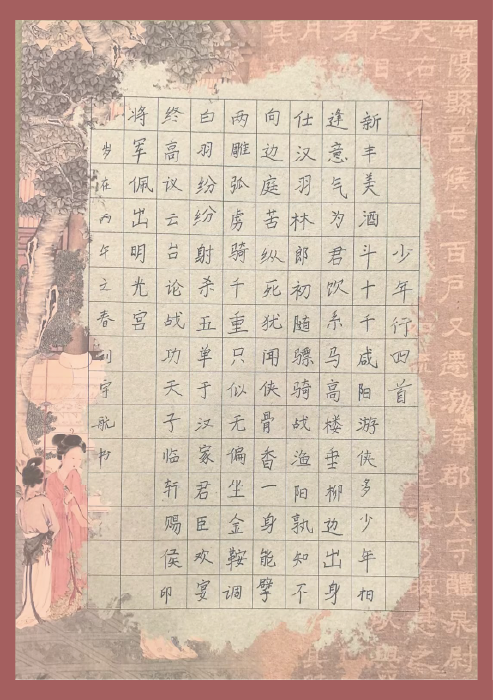 少年行四首
新丰美酒斗十千咸阳游侠多少年相
逢意气为君饮系马高楼垂柳边出身
仕汉羽林郎初随骠骑战渔阳孰知不
向边庭苦纵死犹闻侠骨香一身能擘
两雕弧虏骑千重只似无偏坐金鞍调
白羽纷纷射杀五单于汉家君臣欢宴
终高议云台论战功天子临轩赐侯印
将军佩出明光宫
岁在丙午之春刘宇航书